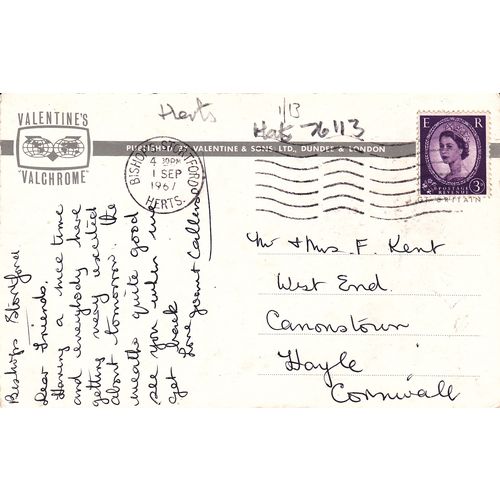 VALENTINE'S
"VALCHROME"
PUBLISHED BY VALENTINE & SONS LTD., DUNDEE & LONDON
Herts
1/13
Herts 76113
BISHOP STORTFORD
4 30PM
1 SEP
1967
HERTS.
E R
POSTAGE
REVENUE
3D
Bishops Stortford
Dear Friends.
Having a nice time
and everybody here
getting very excited
about tomorrow. The
weathe quite good
see you when we
get back
Love
Mr & Mrs F. Kent
West End.
Canonstown
Hayle
Cornwall